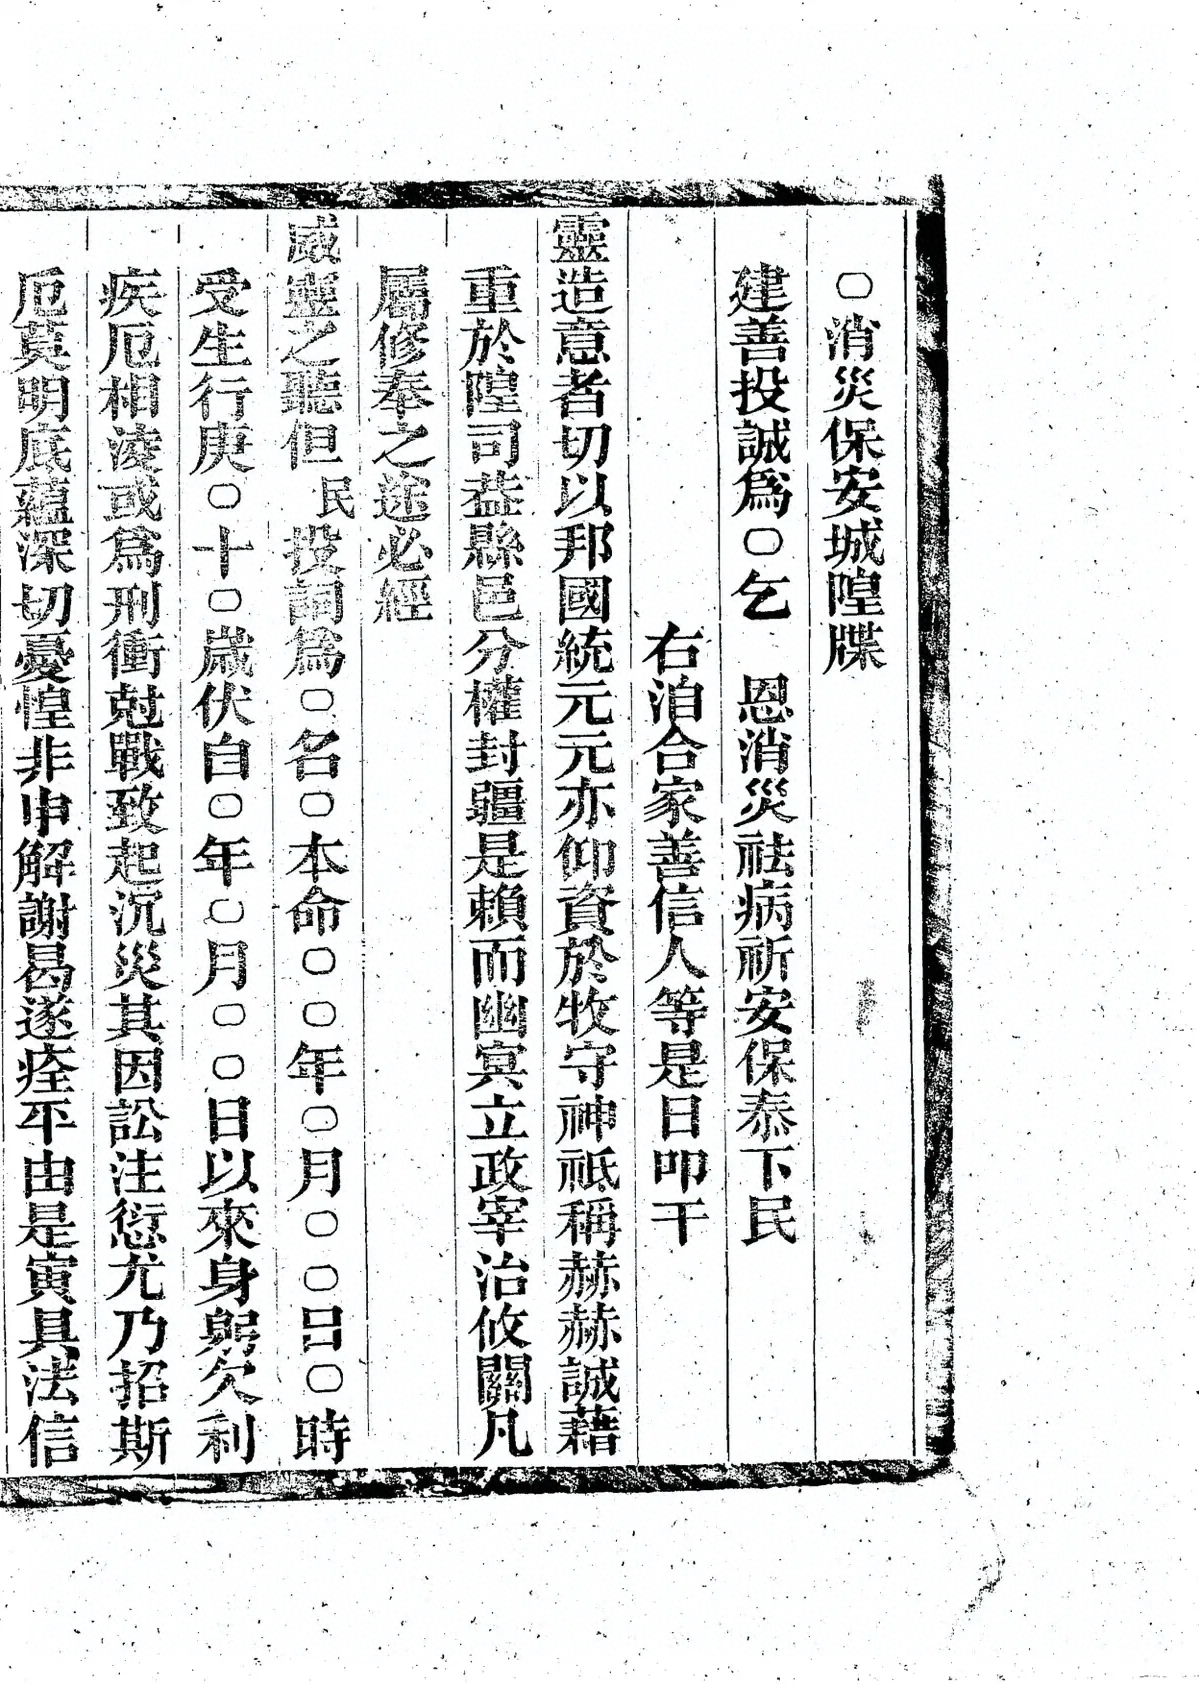 ○消災保安城隍牒
建善投誠爲○乞　恩消災祛病祈安保泰下民
右洎合家善信人等是日叩干
靈造意者切以邦國統元元亦仰資於牧守神祇稱赫赫誠藉
重於隍司葢縣邑分權封疆是賴而幽冥立政宰治攸關凡
屬修奉之途必經
威靈之聽但民投詞爲○名○本命○○年○月○○日○時
受生行庚○十○歲伏自○年○月○○日以來身躬欠利
疾厄相淩或爲刑衝尅戰致起沉災其因訟注愆尤乃招斯
厄莫明底蘊深切憂惶非申解謝曷遂痊平由是寅具法信